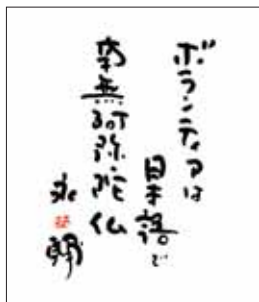 ボランティアは
日本語で
南無阿弥陀仏
永六輔